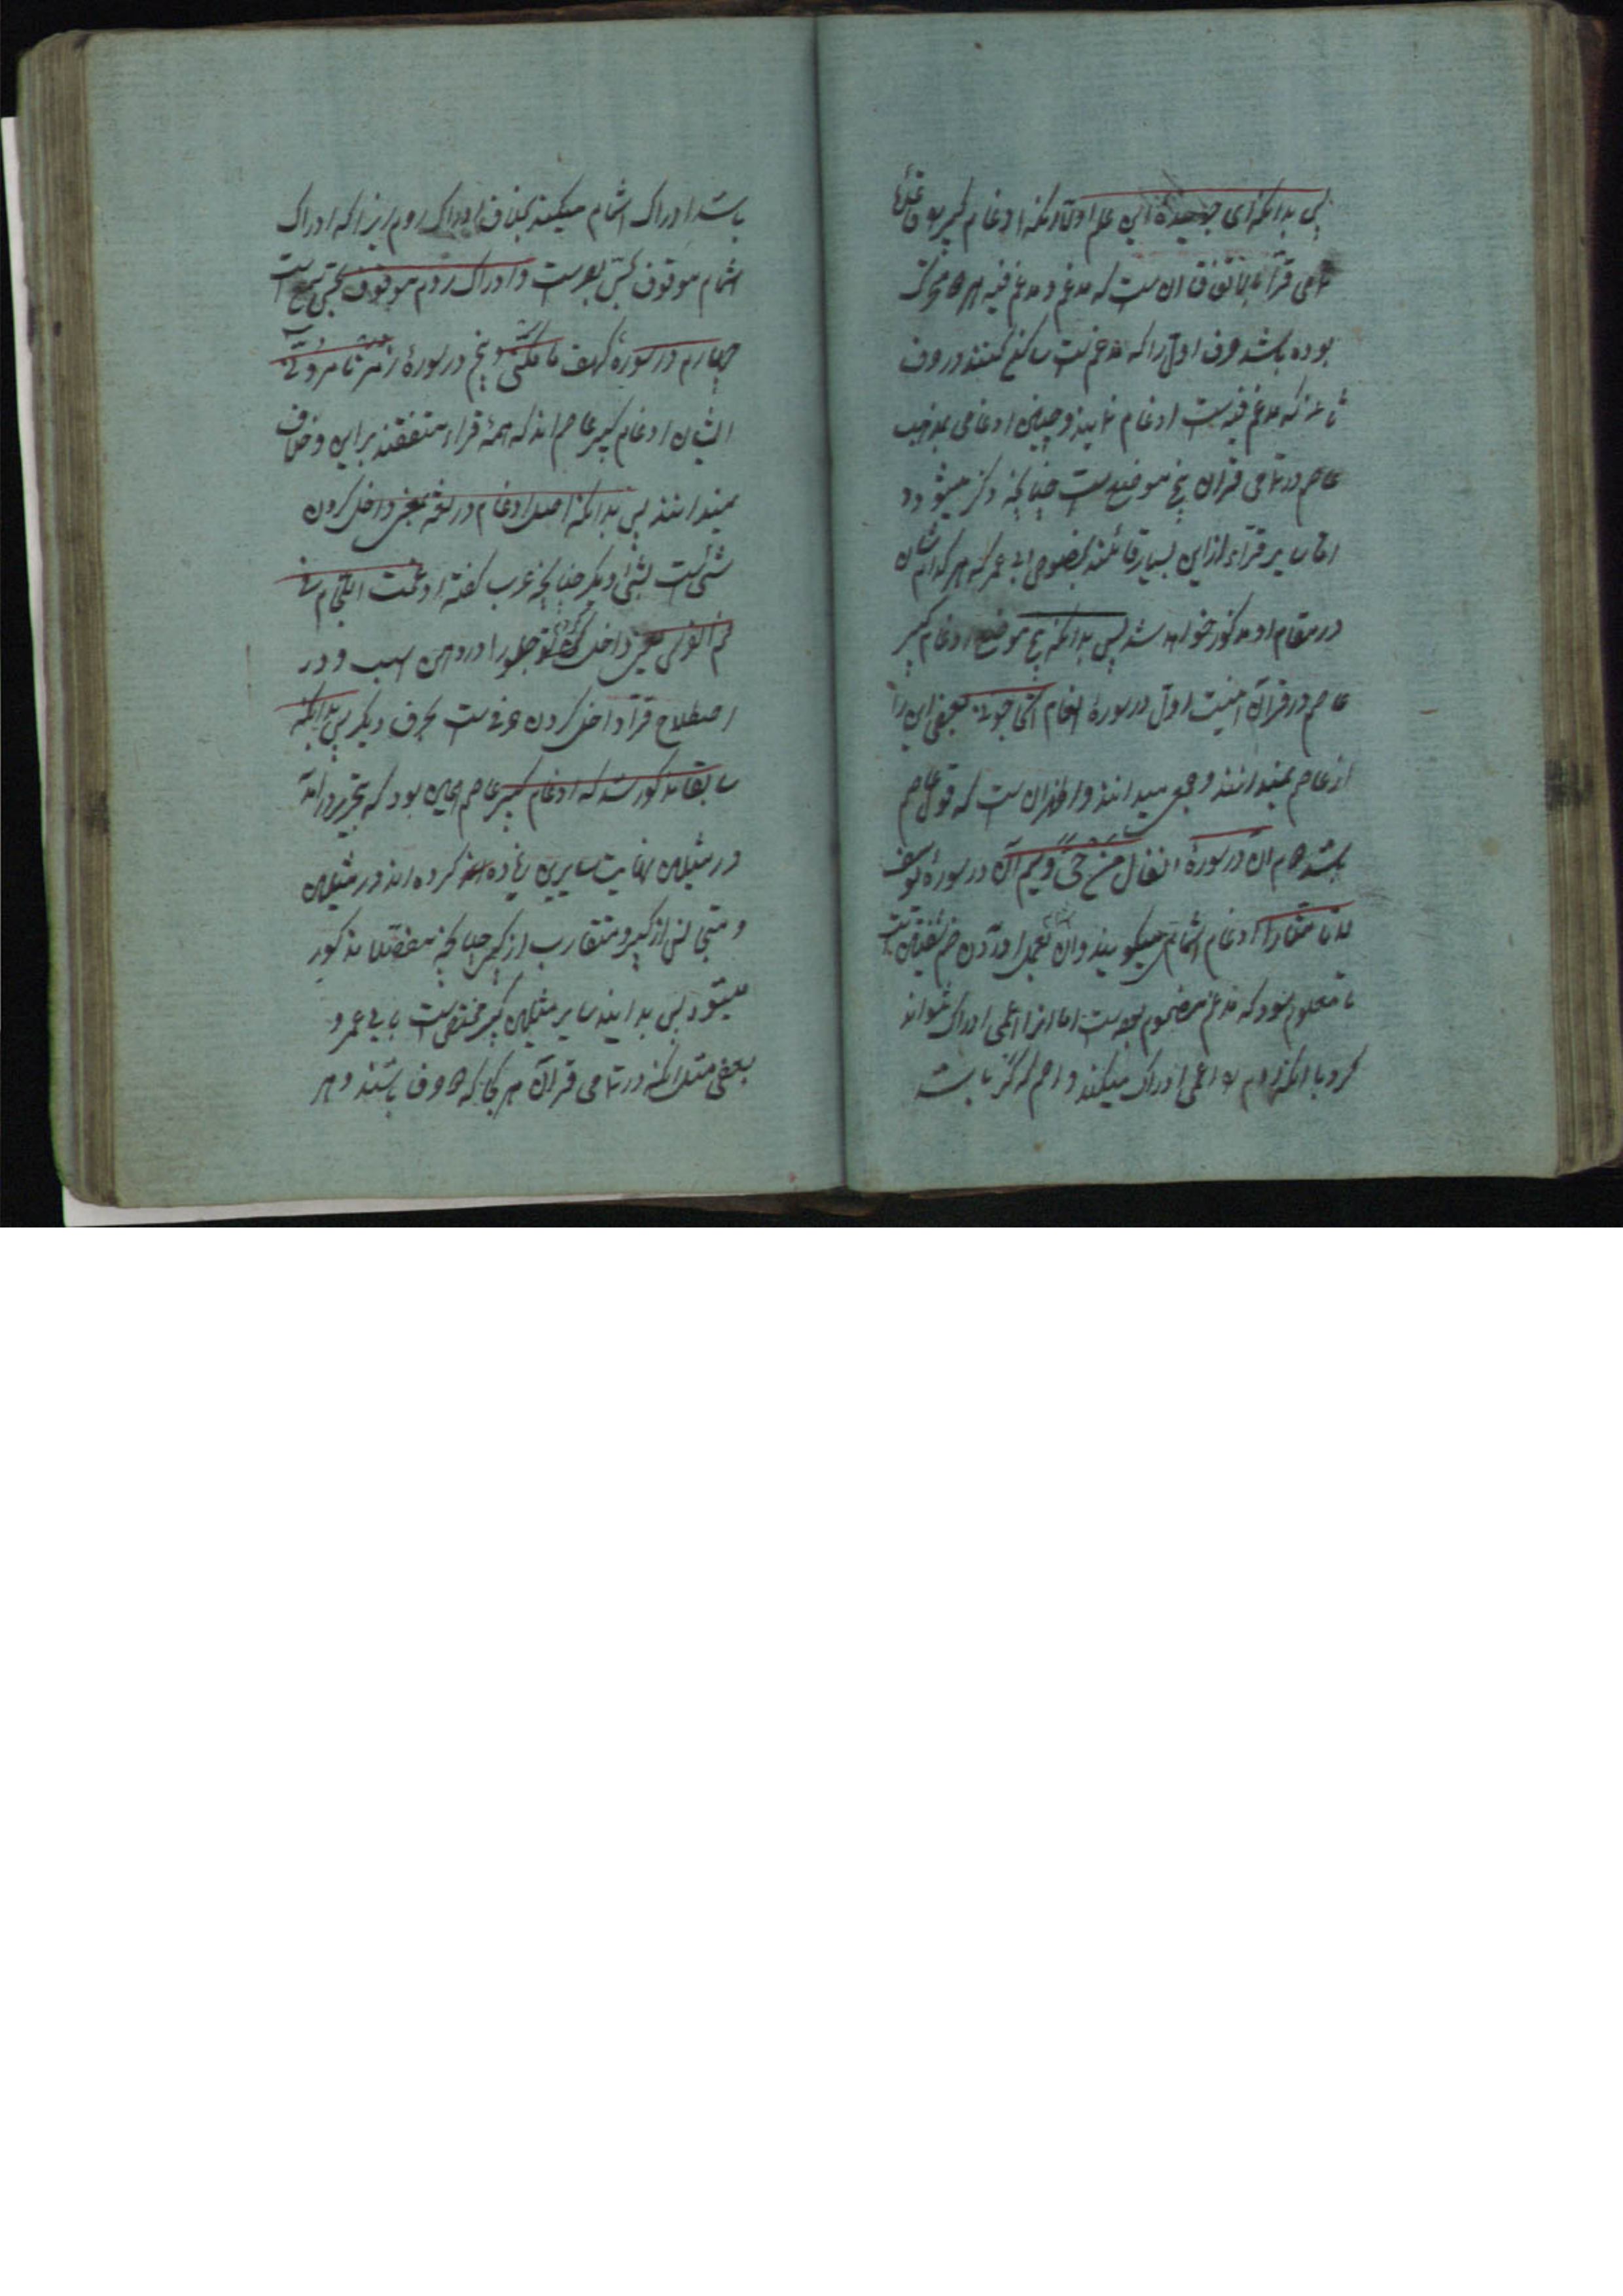 پس بدانکه ای جوینده این علم اولا آنکه ادغام کبیر بقاعده
تمامی قرا بالاتفاق آن ست که مدغم و مدغم فیه هردو متحرک
بوده باشند حرف اول را که مدغم ست ساکن کنند در حرف
ثانی که مدغم فیه ست ادغام نمایند و چنین ادغامی بمذهب
عاصم در تمامی قرآن پنج موضع ست چنانچه ذکر میشود
اما سایر قراء ازین بسیار قائلند بخصوص ابی عمر که هر کدام ایشان
در مقام او مذکور خواهد شد پس بدانکه پنج موضع ادغام کبیر
عاصم در قرآن اینست اول در سورهٔ انعام اتحاجونی بعضی این را
از عاصم نمیدانند و جمعی میدانند و اظهر آن ست که قول عاصم
باشد دوم آن در سورهٔ انفال من حی و سیم آن در سورهٔ یوسف
لا تامنا ادغام اشمام میگویند و آن بعمل آوردن ضم شفتین ست
تا معلوم شود که مدغم مضموم بوده است اما انرا اعمی ادراک نتواند
کرد با آنکه روم را اعمی ادراک میکند و اصم که کر باشد
باشد ادراک اشمام میکند بخلاف ادراک روم زیرا که ادراک
اشمام موقوف بحس بصرست و ادراک روم موقوف بحس سمع است
چهارم در سورهٔ کهف ما مکنی و پنج در سورهٔ زمر تامرونی
ایشان ادغام کبیر عاصم اند که همهٔ قراء متفقند براین و خلاف
نمیدانند پس بدانکه اصل ادغام در لغه بمعنی داخل کردن
شئ ست بشئ دیگر چنانچه عرب گفته ادغمت اللجام فی
فم الفرس یعنی داخل کردم جلو را در دهن اسب و در
اصطلاح قراء داخل کردن حرفی ست بحرف دیگر پس بدانکه
سابقا مذکور شد که ادغام کبیر عاصم همین بود که بتحریر درآمد
در مثلین نهایت سایرین زیاده کرده اند در مثلین
و متجانس از کبیر و متقارب از کبیر چنانچه مفصلا مذکور
میشود پس بدانید سایر مثلین کبیر مختص ست بابی عمرو
بعضی مثل آنکه در تمامی قرآن هر کجا که دو حرف باشند و هر